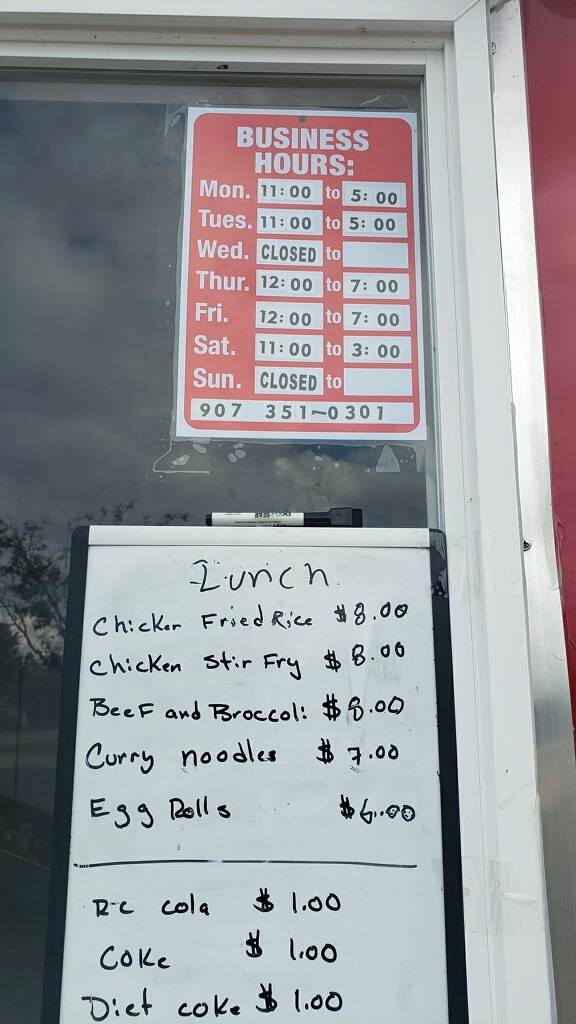 BUSINESS
HOURS:
Mon. 11:00 to 5:00
Tues. 11:00 to 5:00
Wed. CLOSED to
Thur. 12:00 to 7:00
Fri. 12:00 to 7:00
Sat. 11:00 to 3:00
Sun. CLOSED to
907 351-0301
Lunch
Chicken Fried Rice $8.00
Chicken Stir Fry $8.00
Beef and Broccoli $8.00
Curry noodles $7.00
Egg Rolls $6.00
RC cola $1.00
Coke $1.00
Diet coke $1.00